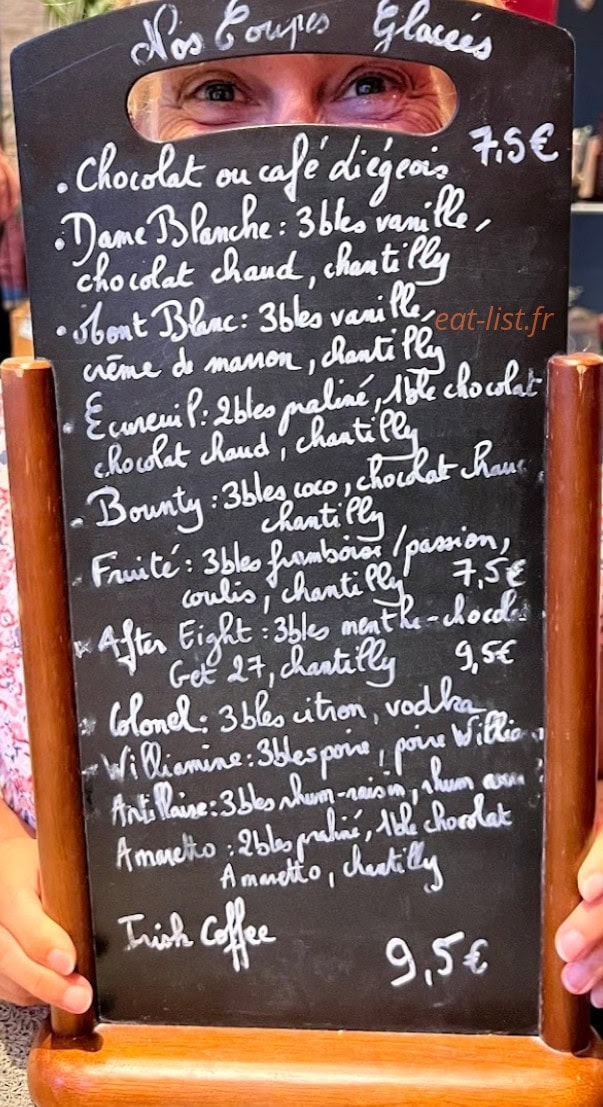 Nos Coupes Glacées
• Chocolat ou café liégeois 7,5€
• Dame Blanche : 3bles vanille,
chocolat chaud, chantilly
• Mont Blanc : 3bles vanille,
eat-list.fr
crème de marron, chantilly
Ecureuil : 2bles praliné, 1ble chocolat
chocolat chaud, chantilly
- Bounty : 3bles coco, chocolat
chantilly
Fruité : 3bles framboise/passion,
coulis, chantilly 7,5€
After Eight : 3bles menthe-
Get 27, chantilly 9,5€
Colonel : 3bles citron, vodka
Williamine : 3bles poire, poire
Antillaise : 3bles rhum-raisin, rhum
Amaretto : 2bles praliné, 1ble chocolat
Amaretto, chantilly
Irish Coffee
9,5€